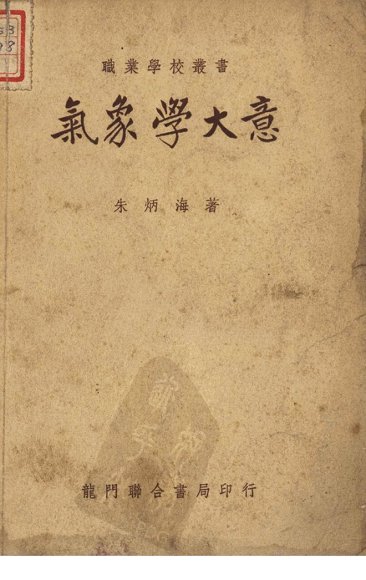 職業學校叢書
氣象學大意
朱炳海著
龍門聯合書局印行